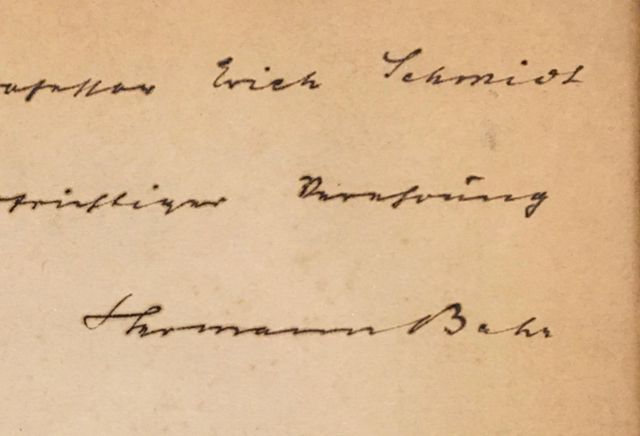 ofessor Erich Schmidt
frichtiger Verehrung
Hermann Bahr